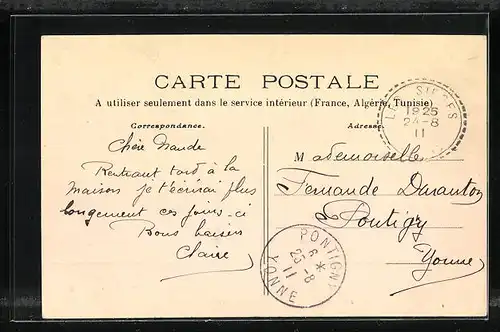 CARTE POSTALE
A utiliser seulement dans le service intérieur (France, Algérie, Tunisie)
Correspondance.
Adresse
LES SIEGES
1925
24-8
11
Chère Nande
Rentrant tard à la
maison je t'écrirai plus
longuement ces jours-ci
Bons baisers
Claire
Mademoiselle
Fernande Daranton
Pontigy
Yonne
PONTIGNY
6 *
25-8
11
YONNE